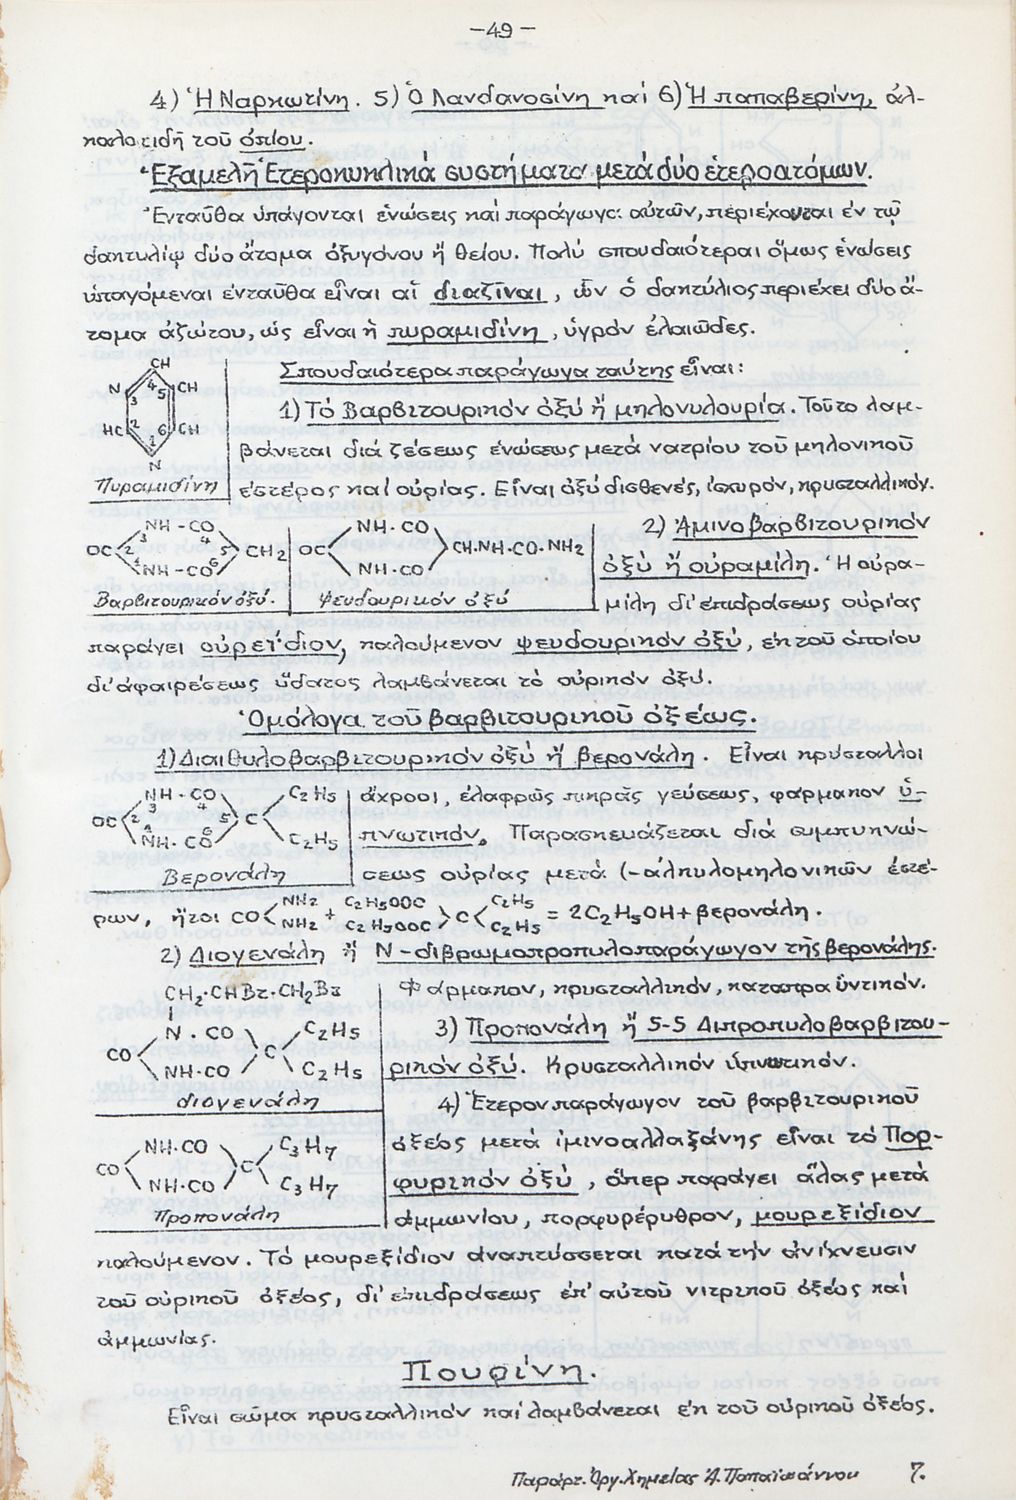 -49-
4) Ἡ Ναρκωτίνη. 5) Ὁ Λανδανοσίνη καί 6) Ἡ παπαβερίνη, ἀλ-
καλοειδῆ τοῦ ὀπίου.
Ἑξαμελῆ Ἑτεροκυκλικά συστήματα μετά δύο ἑτεροατόμων.
Ἐνταῦθα ὑπάγονται ἑνώσεις καί παράγωγα αὐτῶν, περιέχονται ἐν τῷ
δακτυλίῳ δύο ἄτομα ὀξυγόνου ἤ θείου. Πολύ σπουδαιότεραι ὅμως ἑνώσεις
ὑπαγόμεναι ἐνταῦθα εἶναι αἱ διαζῖναι, ὧν ὁ δακτύλιος περιέχει δύο ἄ-
τομα ἀζώτου, ὡς εἶναι ἡ πυραμιδίνη, ὑγρόν ἐλαιῶδες.
CH
N 4 CH
3 5
HC 2 6 CH
1
N
Πυραμιδίνη
Σπουδαιότερα παράγωγα ταύτης εἶναι:
1) Τό Βαρβιτουρικόν ὀξύ ἤ μηλονυλουρία. Τοῦτο λαμ-
βάνεται διά ζέσεως ἑνώσεως μετά νατρίου τοῦ μηλονικοῦ
ἐστέρος καί οὐρίας. Εἶναι ὀξύ δισθενές, ἰσχυρόν, κρυσταλλικόν.
NH - CO
3 4
OC 2 5 CH2
1 6
NH - CO
Βαρβιτουρικόν ὀξύ.
NH · CO
OC CH·NH·CO·NH2
NH · CO
Ψευδουρικόν ὀξύ
2) Ἀμινοβαρβιτουρικόν
ὀξύ ἤ οὐραμίλη. Ἡ οὐρα-
μίλη δι' ἐπιδράσεως οὐρίας
παράγει οὐρεΐδιον, καλούμενον ψευδουρικόν ὀξύ, ἐκ τοῦ ὁποίου
δι' ἀφαιρέσεως ὕδατος λαμβάνεται τό οὐρικόν ὀξύ.
Ὁμόλογα τοῦ βαρβιτουρικοῦ ὀξέως.
1) Διαιθυλοβαρβιτουρικόν ὀξύ ἤ βερονάλη. Εἶναι κρύσταλλοι
NH · CO C2H5
3 4
OC 2 5 C
1 6
NH · CO C2H5
Βερονάλη
ἄχροοι, ἐλαφρῶς πικρᾶς γεύσεως, φάρμακον ὑ-
πνωτικόν. Παρασκευάζεται διά συμπυκνώ-
σεως οὐρίας μετά (-αλκυλομηλονικῶν ἐστέ-
ρων, ἤτοι CO<NH2 NH2 + C2H5OOC C2H5OOC >C< C2H5 C2H5 = 2C2H5OH + βερονάλη.
2) Διογενάλη ἤ N-διβρωμοπροπυλοπαράγωγον τῆς βερονάλης.
CH2·CHBr·CH2Br
N · CO C2H5
CO C
NH·CO C2H5
διογενάλη
Φάρμακον, κρυσταλλικόν, καταπραϋντικόν.
3) Προπονάλη ἤ 5-5 Διπροπυλοβαρβιτου-
ρικόν ὀξύ. Κρυσταλλικόν ὑπνωτικόν.
4) Ἕτερον παράγωγον τοῦ βαρβιτουρικοῦ
NH·CO C3H7
CO C
NH·CO C3H7
Προπονάλη
ὀξέος μετά ἰμινοαλλαξάνης εἶναι τό Πορ-
φυρικόν ὀξύ, ὅπερ παράγει ἅλας μετά
ἀμμωνίου, πορφυρέρυθρον, μουρεξίδιον
καλούμενον. Τό μουρεξίδιον ἀναπτύσσεται κατά τήν ἀνίχνευσιν
τοῦ οὐρικοῦ ὀξέος, δι' ἐπιδράσεως ἐπ' αὐτοῦ νιτρικοῦ ὀξέος καί
ἀμμωνίας.
Πουρίνη.
Εἶναι σῶμα κρυσταλλικόν καί λαμβάνεται ἐκ τοῦ οὐρικοῦ ὀξέος.
Παράρτ. Ὀργ. Χημείας Ἀ. Παπαϊωάννου 7.